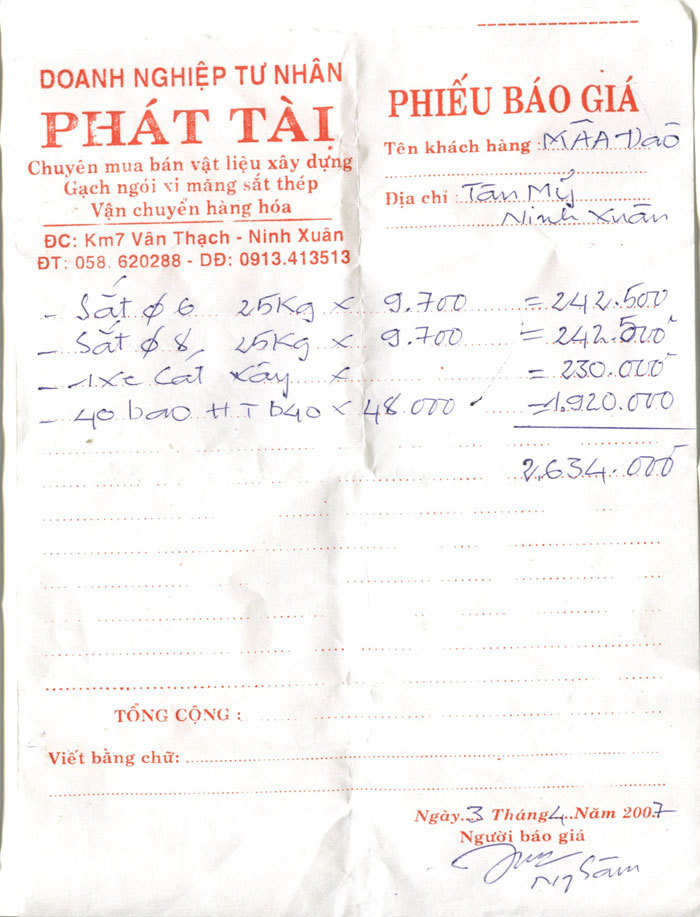 DOANH NGHIỆP TƯ NHÂN
PHÁT TÀI
Chuyên mua bán vật liệu xây dựng
Gạch ngói xi măng sắt thép
Vận chuyển hàng hóa
ĐC: Km7 Vân Thạch - Ninh Xuân
ĐT: 058. 620288 - DĐ: 0913.413513
PHIẾU BÁO GIÁ
Tên khách hàng : MÂA Đaõ
Địa chỉ : Tân Mỹ
Ninh Xuân
- Sắt φ 6 25Kg x 9.700 = 242.500
- Sắt φ 8 25Kg x 9.700 = 242.500
- 1 xe Cát xây x = 230.000
- 40 bao HT b40 x 48.000 = 1.920.000
2.634.000
TỔNG CỘNG :
Viết bằng chữ:
Ngày 3 Tháng 4 Năm 2007
Người báo giá
Ng Sâm